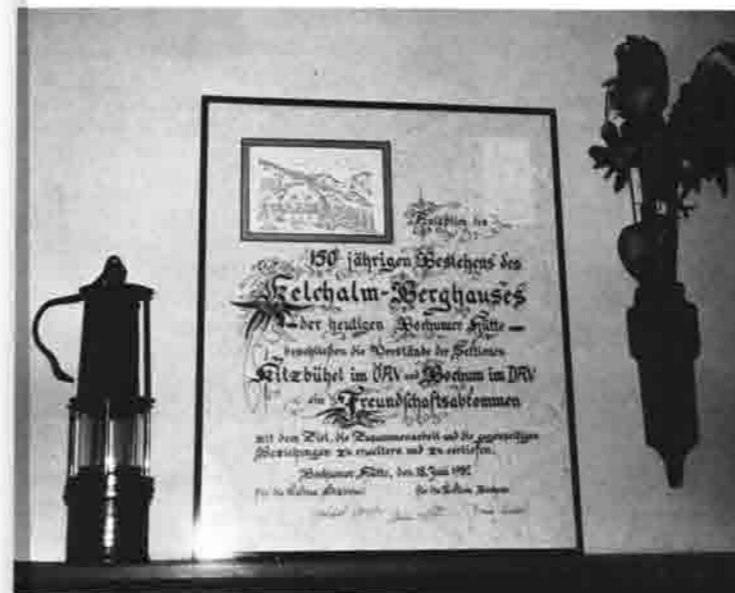 150 jährigen Bestehens des
Kelchalm-Berghauses
– der heutigen Bochumer Hütte –
beschließen die Vorstände der Sektionen
Kitzbühel im ÖAV und Bochum im DAV
ein Freundschaftsabkommen
mit dem Ziel, die Zusammenarbeit und die gegenseitigen
Beziehungen zu erweitern und zu vertiefen.
Bochumer Hütte, den 18. Juni
für die Sektion Kitzbühel für die Sektion Bochum